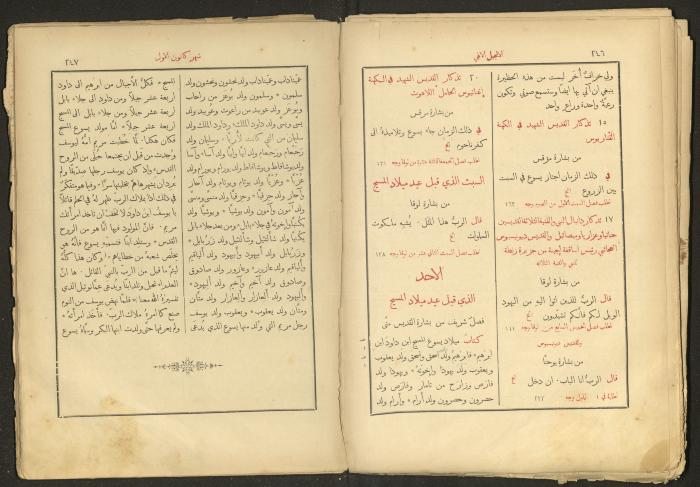 ٢٤٦
الانجيل الالهي
ولي خراف أُخر ليست من هذه الحظيرة
ينبغي ان آتي بها ايضاً وستسمع صوتي وتكون
رعية واحدة وراعٍ واحد
١٥ تذكار القديس الشهيد في الكهنة
من بشارة مرقس
في ذلك الزمان اجتاز يسوع في السبت
بين الزروع الخ
١٧ تذكار دانيال النبي والفتية الثلاثة القديسين
حننيا وعزاريا وميصائيل والقديس ديونيسيوس
من بشارة لوقا
قال الربُّ للذين اتوا اليهِ من اليهود
الويل لكم فانكم تشيدون الخ
من بشارة يوحنا
قال الربُّ انا الباب. ان دخل الخ
٢٠ تذكار القديس الشهيد في الكهنة
اغناطيوس الحامل اللاهوت
من بشارة مرقس
في ذلك الزمان جاء يسوع وتلاميذهُ الى
كفرناحوم الخ
السبت الذي قبل عيد ميلاد المسيح
من بشارة لوقا
قال الربُّ هذا المثل. يُشبه ملكوت
السماوات الخ
الاحد
الذي قبل عيد ميلاد المسيح
فصل شريف من بشارة القديس متى
كتاب ميلاد يسوع المسيح ابن داود ابن
ابرهيم * فابرهيم ولد اسحق واسحق ولد يعقوب
ويعقوب ولد يهوذا واخوتهُ * ويهوذا ولد
فارص وزارح من تامار وفارص ولد
حصرون وحصرون ولد أرام * وأرام ولد
شهر كانون الاول
٢٤٧
عمِّيناداب وعمِّيناداب ولد نحشون ونحشون ولد
سلمون * وسلمون ولد بُوعز من راحاب
وبُوعز ولد عوبيد من راعوث وعُوبيد ولد
يسَّى ويسَّى ولد داود الملك * وداود الملك ولد
سليمان من التي كانت لأُوريَّا * وسليمان ولد
رحبعام ورحبعام ولد ابيَّا وابيَّا ولد آسا * وآسا
ولد يوشافاط ويوشافاط ولد يورام ويورام ولد
عُزِّيَّا * وعُزِّيَّا ولد يوتام ويوتام ولد آحاز
وآحاز ولد حزقيا * وحزقيا ولد منسَّى ومنسَّى
ولد آمون وآمون ولد يوشيا * ويوشيا ولد
يكنيا واخوتهُ في جلاء بابل * ومن بعد جلاء بابل
يكنيا ولد شألتئيل وشألتئيل ولد زربابل *
وزربابل ولد أبيهود وأبيهود ولد ألياقيم
وألياقيم ولد عازور * وعازور ولد صادوق
وصادوق ولد آخيم وآخيم ولد أليهود *
وأليهود ولد ألعازار وألعازار ولد متَّان
ومتَّان ولد يعقوب * ويعقوب ولد يوسف
رجل مريم التي ولد منها يسوع الذي يدعى
المسيح * فكلُّ الأجيال من ابرهيم الى داود
اربعة عشر جيلاً ومن داود الى جلاء بابل
اربعة عشر جيلاً ومن جلاء بابل الى المسيح
اربعة عشر جيلاً * أمَّا مولد يسوع المسيح
فكان هكذا. لمَّا خُطبت مريم امهُ ليوسف
وجدت من قبل ان يجتمعا حُبلى من الروح
القدس * واذ كان يوسف رجلها صدِّيقاً ولم
يُرد ان يشهرها همَّ بتخليتها سرًّا * وفيما هو متفكِّر
في ذلك اذا بملاك الرب ظهر لهُ في الحلم قائلاً
يا يوسف ابن داود لا تخف ان تاخذ امرأتك
مريم. فانَّ المولود فيها انما هو من الروح
القدس * وستلد ابناً فتسميهِ يسوع فانهُ هو
يخلّص شعبهُ من خطاياهم * (وكان هذا كلُّهُ
ليتمَّ ما قيل من الربِّ بالنبي القائل. ها انَّ
العذراء تحبل وتلد ابناً ويُدعى عمَّانوئيل الذي
تفسيرهُ الله معنا) * فلمَّا نهض يوسف من النوم
صنع كما امرهُ ملاك الرب. فأخذ امرأتهُ *
ولم يعرفها حتى ولدت ابنها البكر وسمَّاهُ يسوع